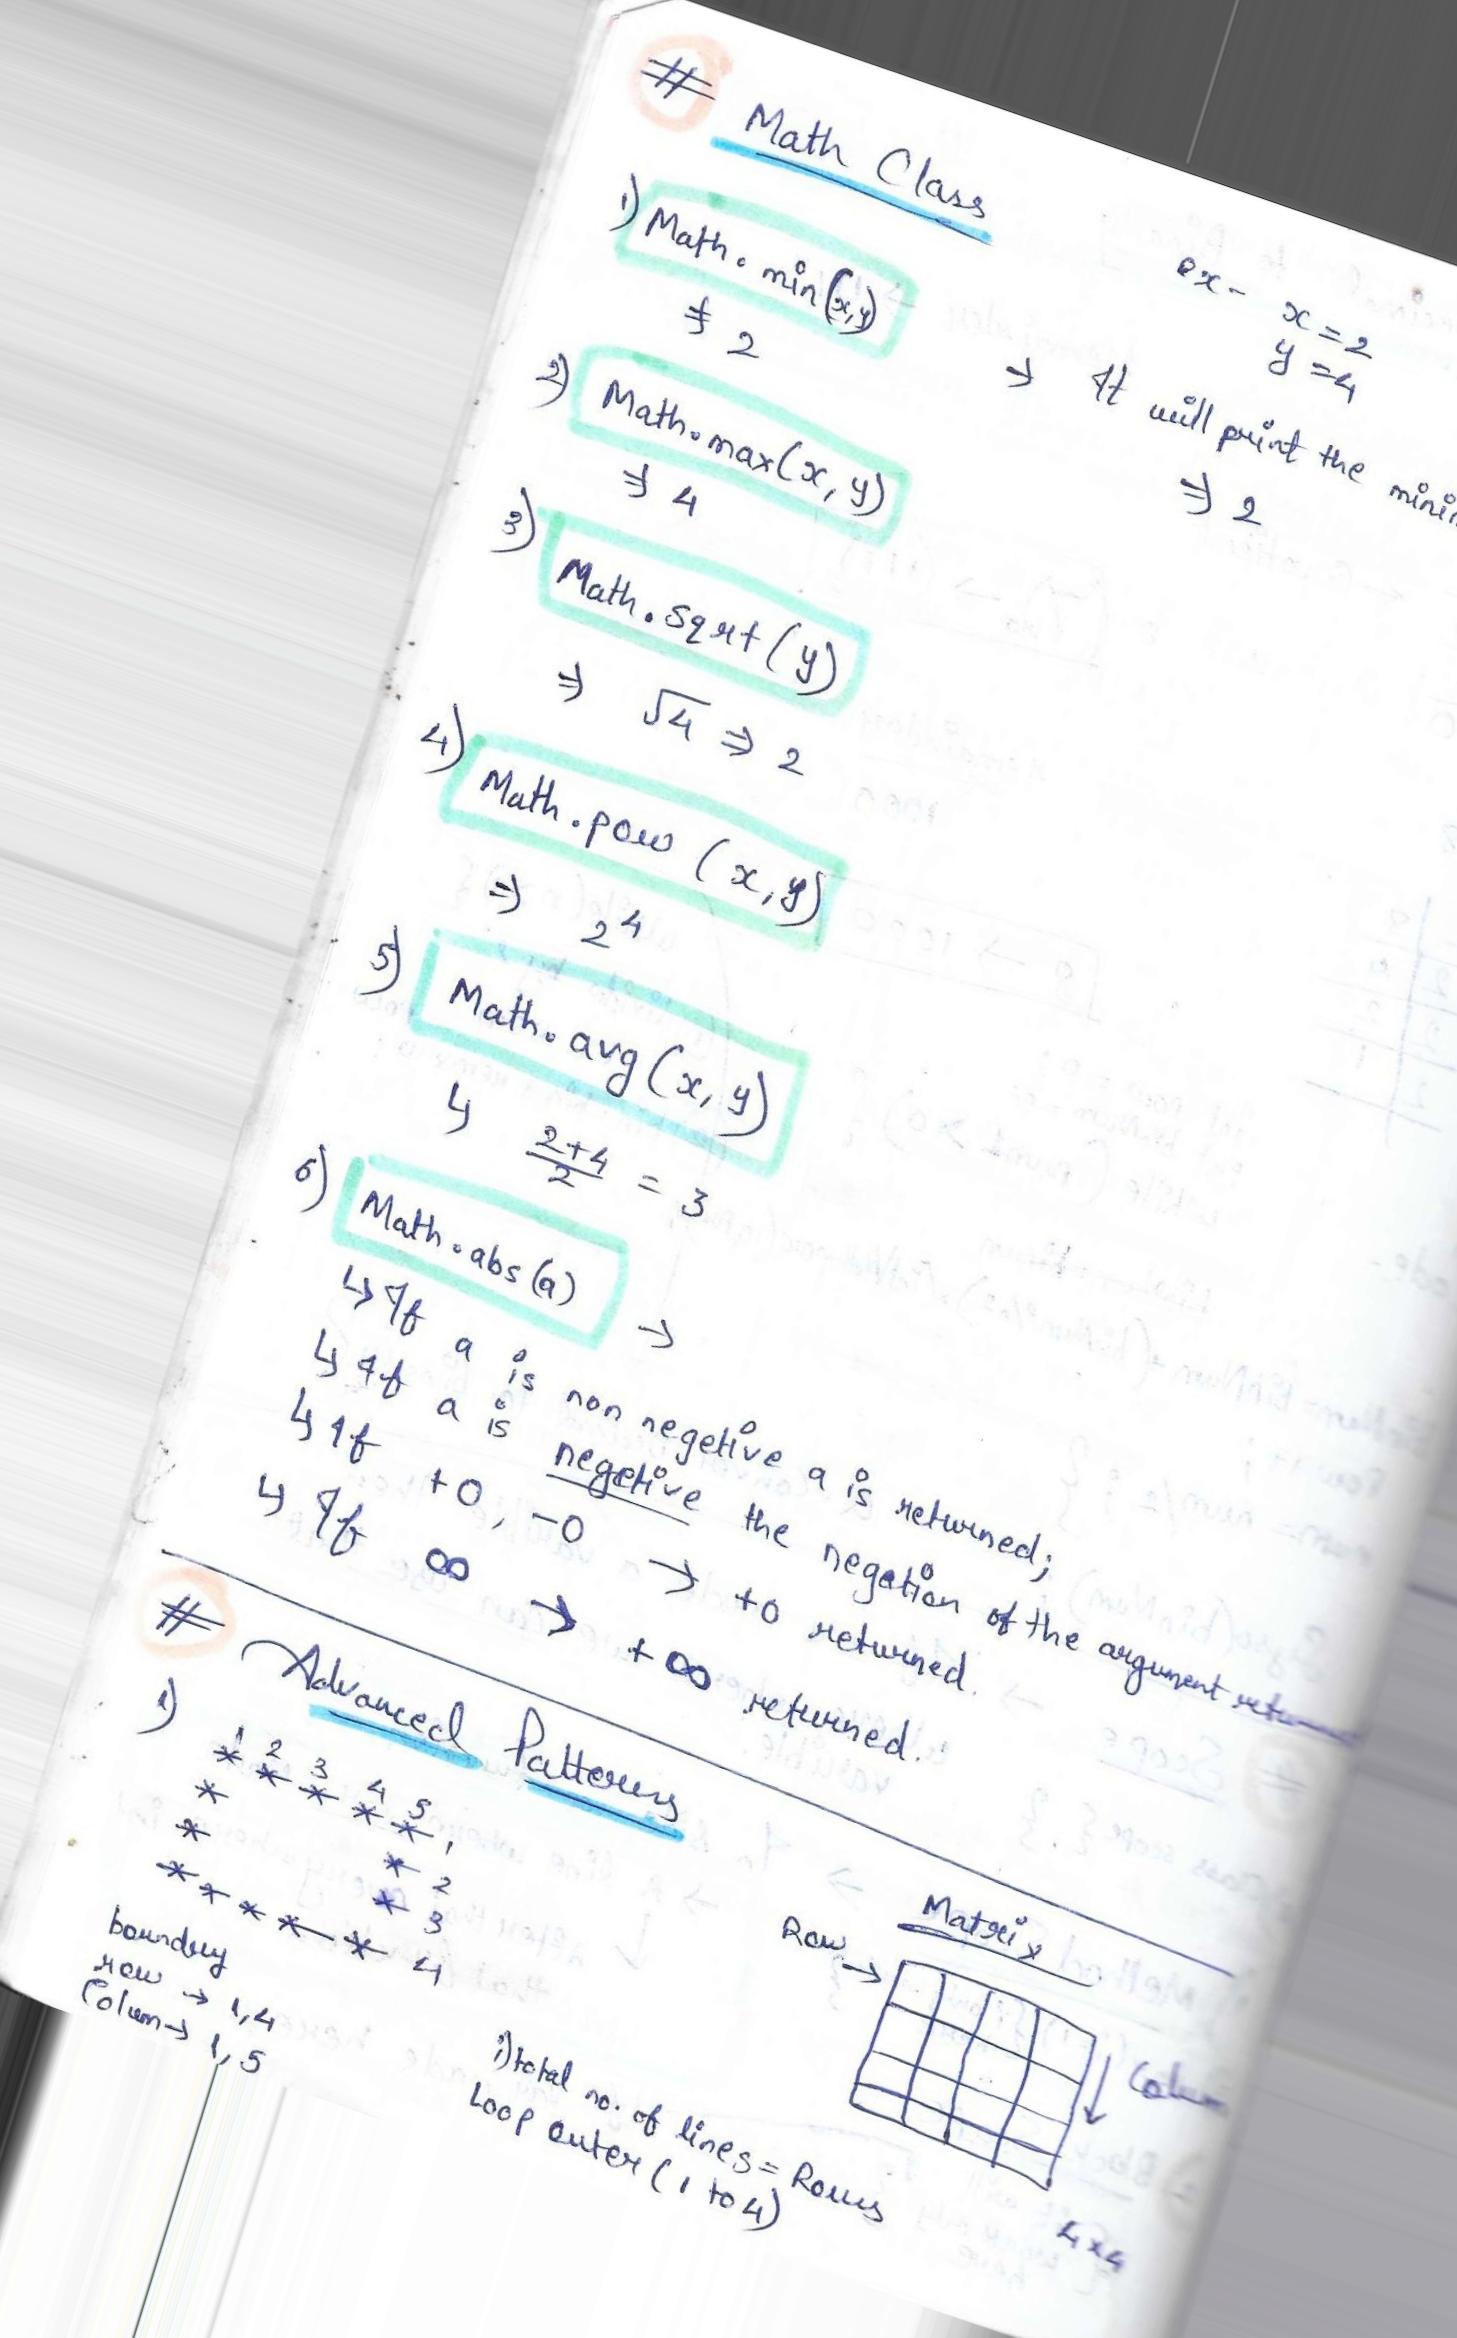 # Math Class
1) Math.min(x,y)
ex- x=2
y=4
⇒ 2
→ It will print the
⇒ 2
2) Math.max(x, y)
⇒ 4
3) Math.sqrt(y)
⇒ √4 ⇒ 2
4) Math.pow (x,y)
⇒ 2⁴
5) Math.avg(x, y)
↳ 2+4/2 = 3
6) Math.abs(a) →
↳ If a is non negetive a is returned;
↳ If a is negetive the negation of the argument
↳ If +0, -0 → +0 returned.
↳ If ∞ → +∞ returned.
# Advanced Patterns
1)
1 2 3 4 5
* * * * * 1
* * 2
* * 3
* * * * * 4
boundry
row → 1,4
Colum→ 1,5
Matrix
Row →
↓ Colum
4x4
i) total no. of lines = Rows
Loop outer (1 to 4)